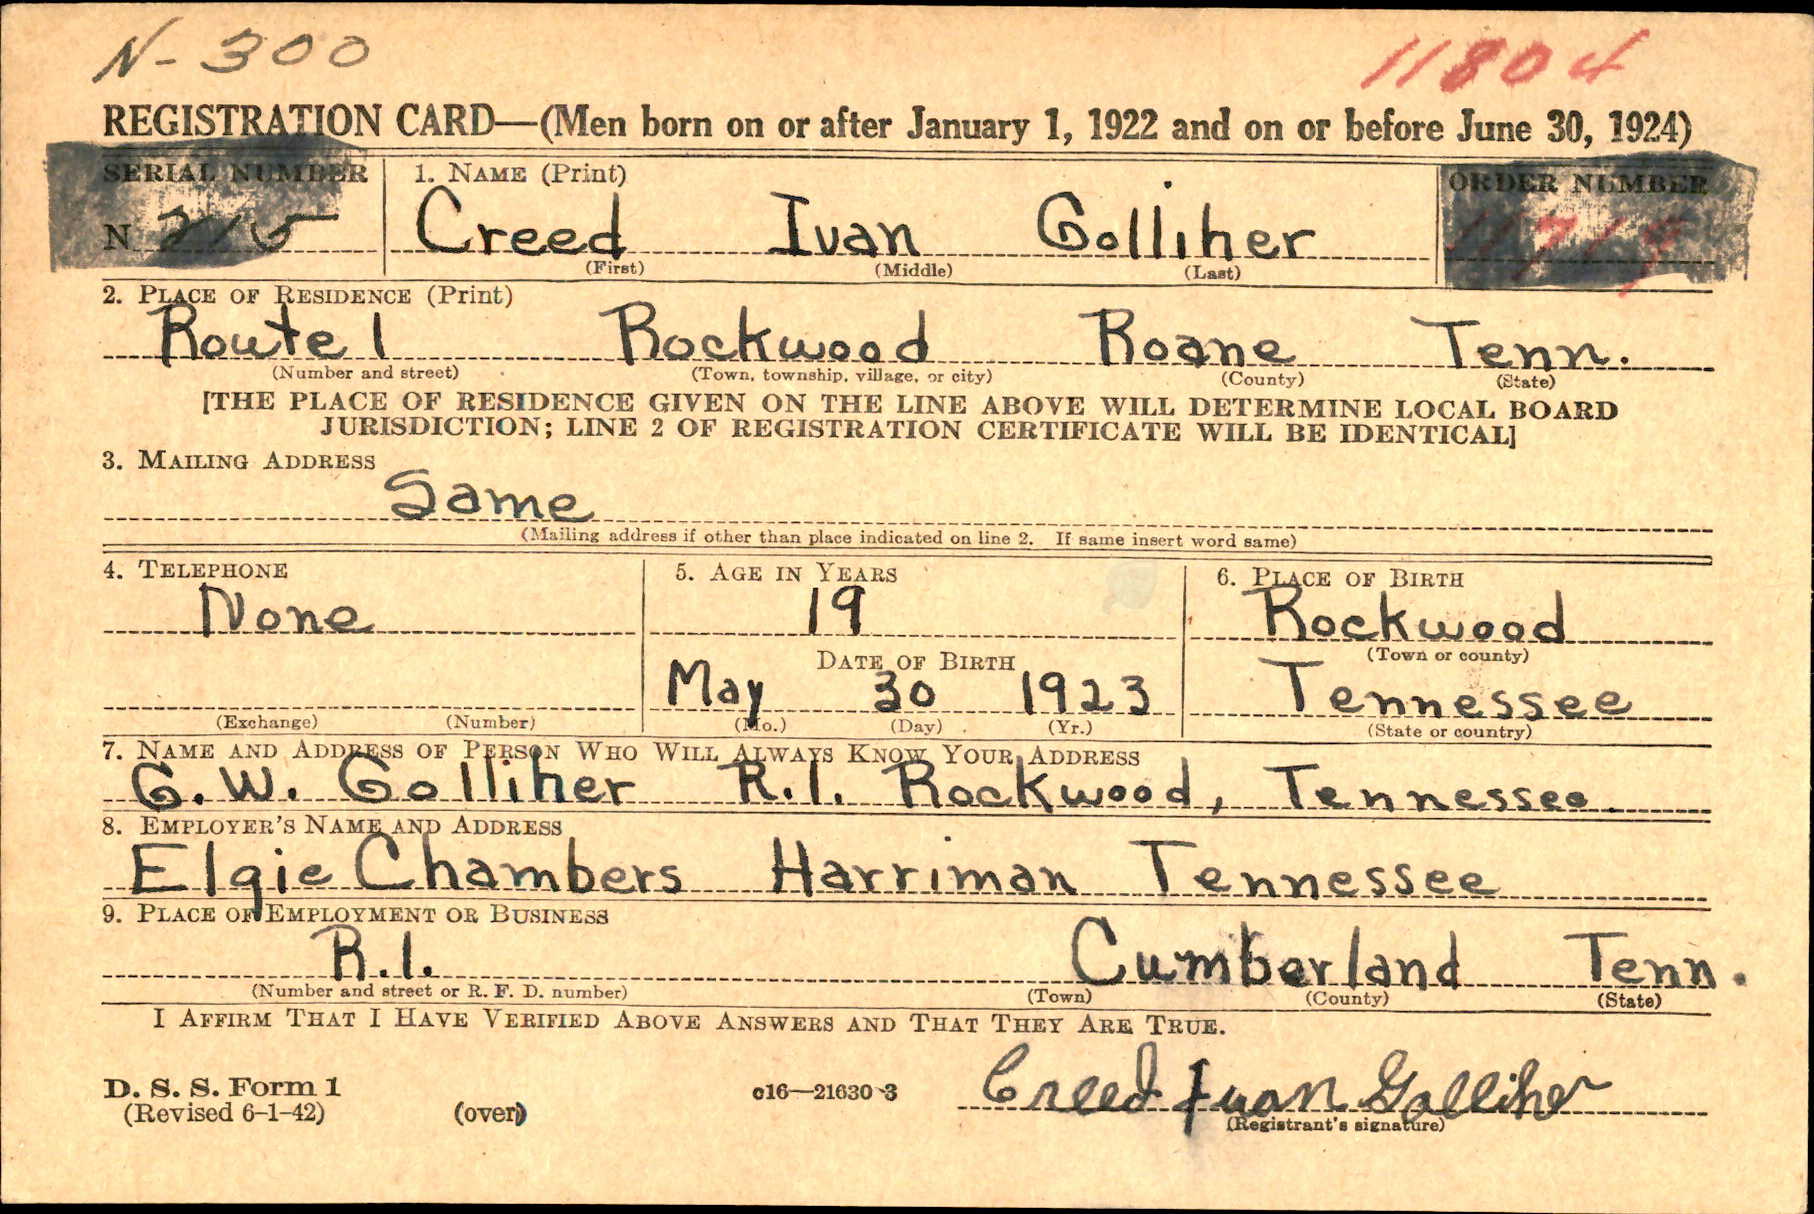 N-300 11804
REGISTRATION CARD—(Men born on or after January 1, 1922 and on or before June 30, 1924)
SERIAL NUMBER 1. NAME (Print) ORDER NUMBER
N 215 Creed Ivan Golliher 11719
(First) (Middle) (Last)
2. PLACE OF RESIDENCE (Print)
Route 1 Rockwood Roane Tenn.
(Number and street) (Town, township, village, or city) (County) (State)
[THE PLACE OF RESIDENCE GIVEN ON THE LINE ABOVE WILL DETERMINE LOCAL BOARD
JURISDICTION; LINE 2 OF REGISTRATION CERTIFICATE WILL BE IDENTICAL]
3. MAILING ADDRESS
Same
(Mailing address if other than place indicated on line 2. If same insert word same)
4. TELEPHONE 5. AGE IN YEARS 6. PLACE OF BIRTH
None 19 Rockwood
(Town or county)
DATE OF BIRTH
May 30 1923 Tennessee
(Exchange) (Number) (Mo.) (Day) (Yr.) (State or country)
7. NAME AND ADDRESS OF PERSON WHO WILL ALWAYS KNOW YOUR ADDRESS
G. W. Golliher R.1. Rockwood, Tennessee.
8. EMPLOYER'S NAME AND ADDRESS
Elgie Chambers Harriman Tennessee
9. PLACE OF EMPLOYMENT OR BUSINESS
R.1. Cumberland Tenn.
(Number and street or R. F. D. number) (Town) (County) (State)
I AFFIRM THAT I HAVE VERIFIED ABOVE ANSWERS AND THAT THEY ARE TRUE.
D. S. S. Form 1 c16—21630-3 Creed Ivan Golliher
(Revised 6-1-42) (over) (Registrant's signature)